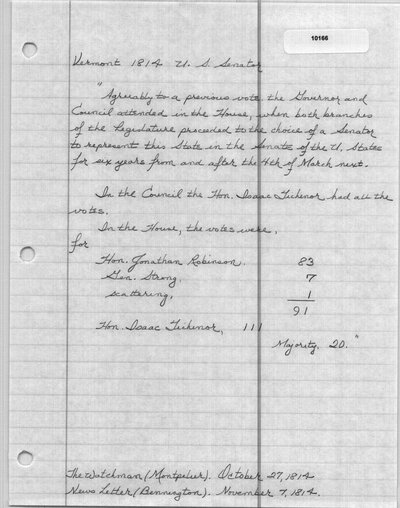 10166
Vermont 1814 U. S. Senator
"Agreeably to a previous vote, the Governor and
Council attended in the House, when both branches
of the Legislature preceded to the choice of a Senator
to represent this State in the Senate of the U. States
for six years from and after the 4th of March next.
In the Council the Hon. Isaac Tichenor had all the
votes.
In the House, the votes were,
for
Hon. Jonathan Robinson. 83
Gen. Strong, 7
scattering, 1
91
Hon. Isaac Tichenor, 111
Majority, 20."
The Watchman (Montpelier). October 27, 1814
News Letter (Bennington). November 7, 1814.